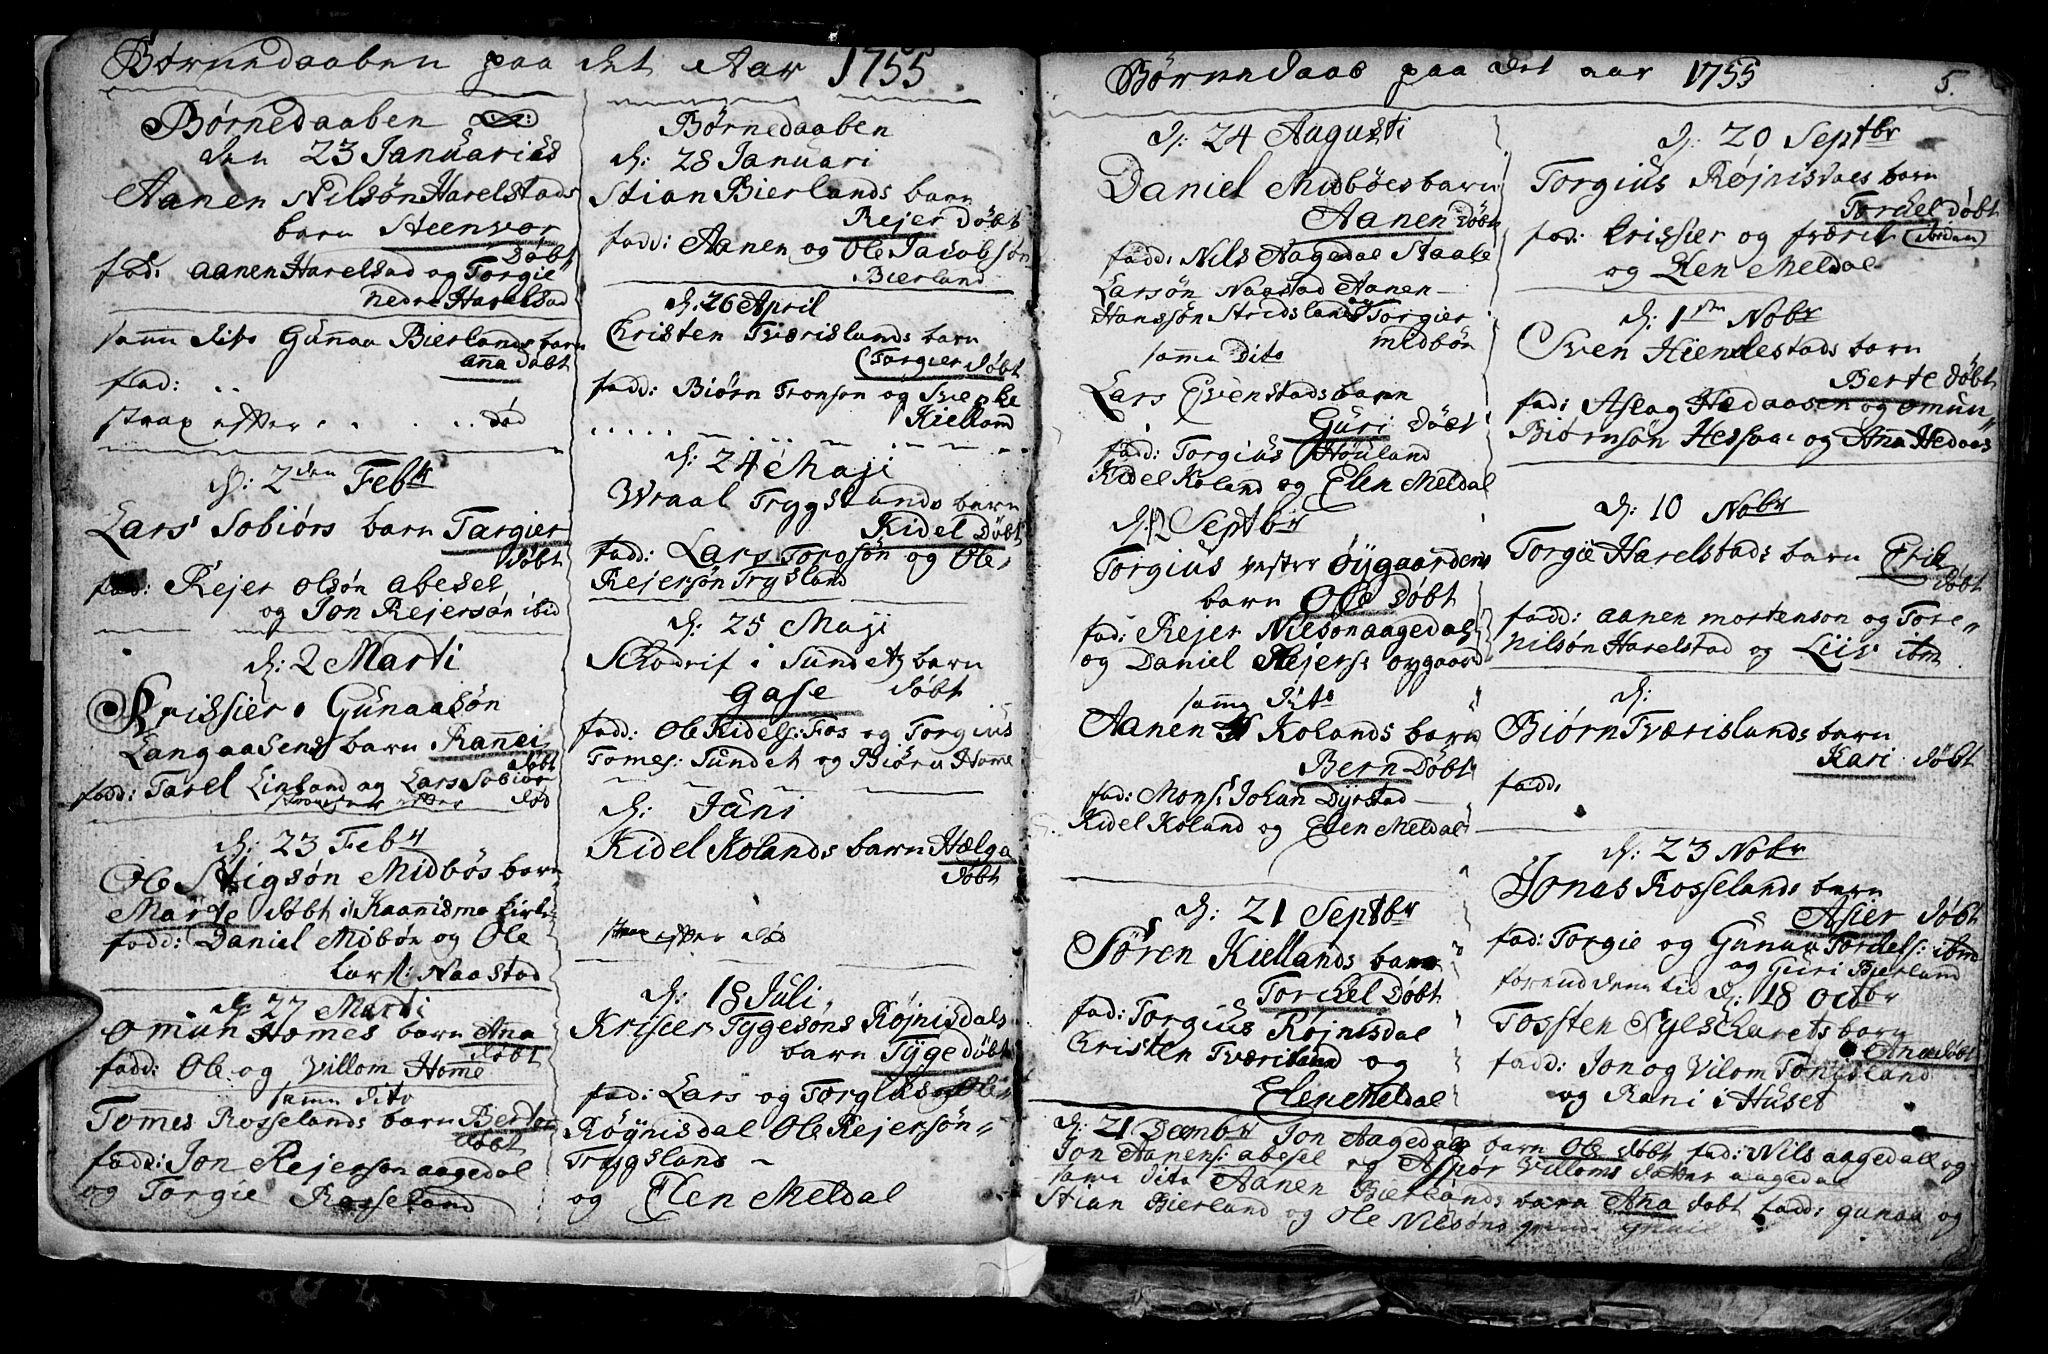 Børnedaaben paa det Aar 1755
Børnedaaben
den 23 Januari
Aanen Nilsøn Harelstads
barn Steenvor
Døbt
fad: aanen Harelstad og Torgie
nedre Harelstad
samme dito Gunaa Bierlands barn
ana døbt
fad: . .
strax efter . . . . . død
d: 2den Feb
Lars Sobiørs barn Targier
døbt
fad: Rejer olsøn abesel
og Jon Rejersøn ibid
d: 2 Marti
Krissier Gunaasøn
Langaasens barn Rannei
døbt
fadd: Tarel Linland og Lars Sobiør
efter død
d: 23 Feb
Ole Stigsøn Midbøs barn
Marte døbt i
fadd: Daniel Midbøn og Ole
Lars: Naastad
d: 27 Marti
omun Homes barn Ana
døbt
fadd: Ole og Villom Home
samme dito
Tomes Rosselands barn Berte
døbt
fadd: Jon Rejersøn aagedal
og Torgie Rosseland
Børnedaaben
d: 28 Januari
Stian Bierlands barn
Rejer Døbt
fadd: Aanen og Ole Jacobsøn
Bierland
d: 26 April
Christen Tværislands barn
Torgier døbt
fadd: Biørn Tronson og Svenke
Kielland
d: 24 Maji
Wraal Tryggslands barn
Kidel Døbt
fadd: Lars Torosøn og Ole
Rejersøn Trysland
d: 25 Maji
i Sundet barn
gase døbt
fadd: Ole Kidels: Fos og Torgius
Tomes: Sundet og Biørn Home
d: Juni
Kidel Kolands barn Hælga
døbt
efter død
d: 18 Juli
Krisier Tygesøns Røjnisdals
barn Tyge døbt
fad: Lars og Torgius
Røynisdal Ole Rejersøn
Tryggsland
og Elen Meldal
Børnedaab paa det aar 1755
5.
d: 24 Augusti
Daniel Midbøes barn
Aanen Døbt
fadd: Nils Aagedal Staale
Larsøn Naastad Aanen
Hanssøn Stridsland Torgier
midbøn
samme Dito
Lars Evenstads barn
Guri døbt
fadd: Torgius Høuland
Kidel Koland og Elen Meldal
d: 12 Septbr
Torgius vester øygaardens
barn Ole Døbt
fad: Rejer Nilsøn aagedal
og Daniel Rejers: øygaard
samme dito
Aanen Kolands barn
Bern Døbt
fad: Mons: Johan Dyrstad
Kidel Koland og Elen Meldal
d: 21 Septbr
Søren Kiellands barn
Torckel Døbt
fad: Torgius Røjnisdal
Christen Tværisland og
Elen Meldal
d: 20 Septbr
Torgius Røjnisdals barn
Torckel Døbt
fad: Crissier og
og Elen Meldal
d: 1ste Nobr
Sven Hiendestads barn
Berte døbt
fad: Aslag Hedaasen og omun
Biørnsøn Hessaa og Anna Hedaas
d: 10 Nobr
Torgie Harelstads barn Erik
døbt
fadd: aanen mortenson og Tore
Nilsøn Harelstad og Liiv ibm
d:
Biørn Tværislands barn
Kari døbt
fadd:
d: 23 Nobr
Jonas Rosselands barn
Asier døbt
fad: Torgie og Gunaa Torckels: ibm
og Guri Bierland
forud den tid d: 18 octbr
Tossten barn
Ana døbt
fadd: Jon og Vilom Tonisland
og Rani i Huset
d: 21 Decembr Jon Aagedals barn Ole døbt fad: Nils aagedal og
Jon Aanens: abesel og Aspør Villoms datter aagedal
samme dito Aanen Bierlands barn Ana døbt fadd: gunaa og
Stian Bierland og Ole Nilsøns